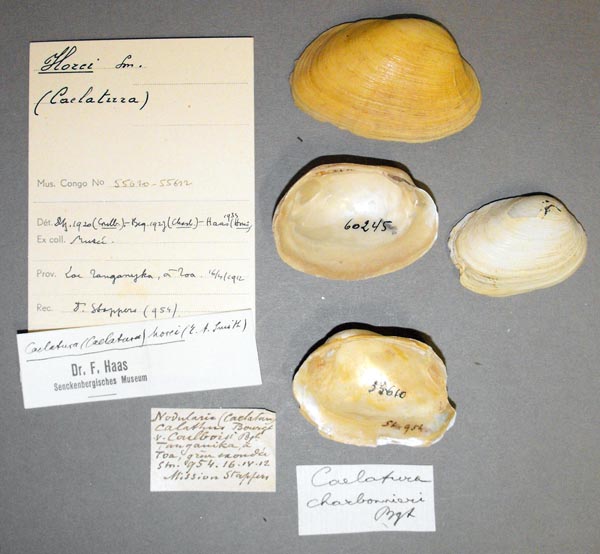 Horei Sm.
(Caelatura)
Mus. Congo No 55610-55612
Dét. Dtz. 1920 (Coulb.) - Beq. 1927 (Charb.) - Haas 1935
Ex coll. Musée.
Prov. Lac Tanganyka, à Toa. 16/4/1912
Rec. D. Stappers (954)
Caelatura (Caelatura) horei (E. A. Smith)
Dr. F. Haas
Senckenbergisches Museum
Nodularia (Caelatura)
calathus Bourgt
v. Coulboisi Bgt
Tanganika à
Toa, grèu exondée
Stn. 954. 16.IV.12
Mission Stappers
Caelatura
charbonnieri
Bgt
60245
55610
Stn. 954